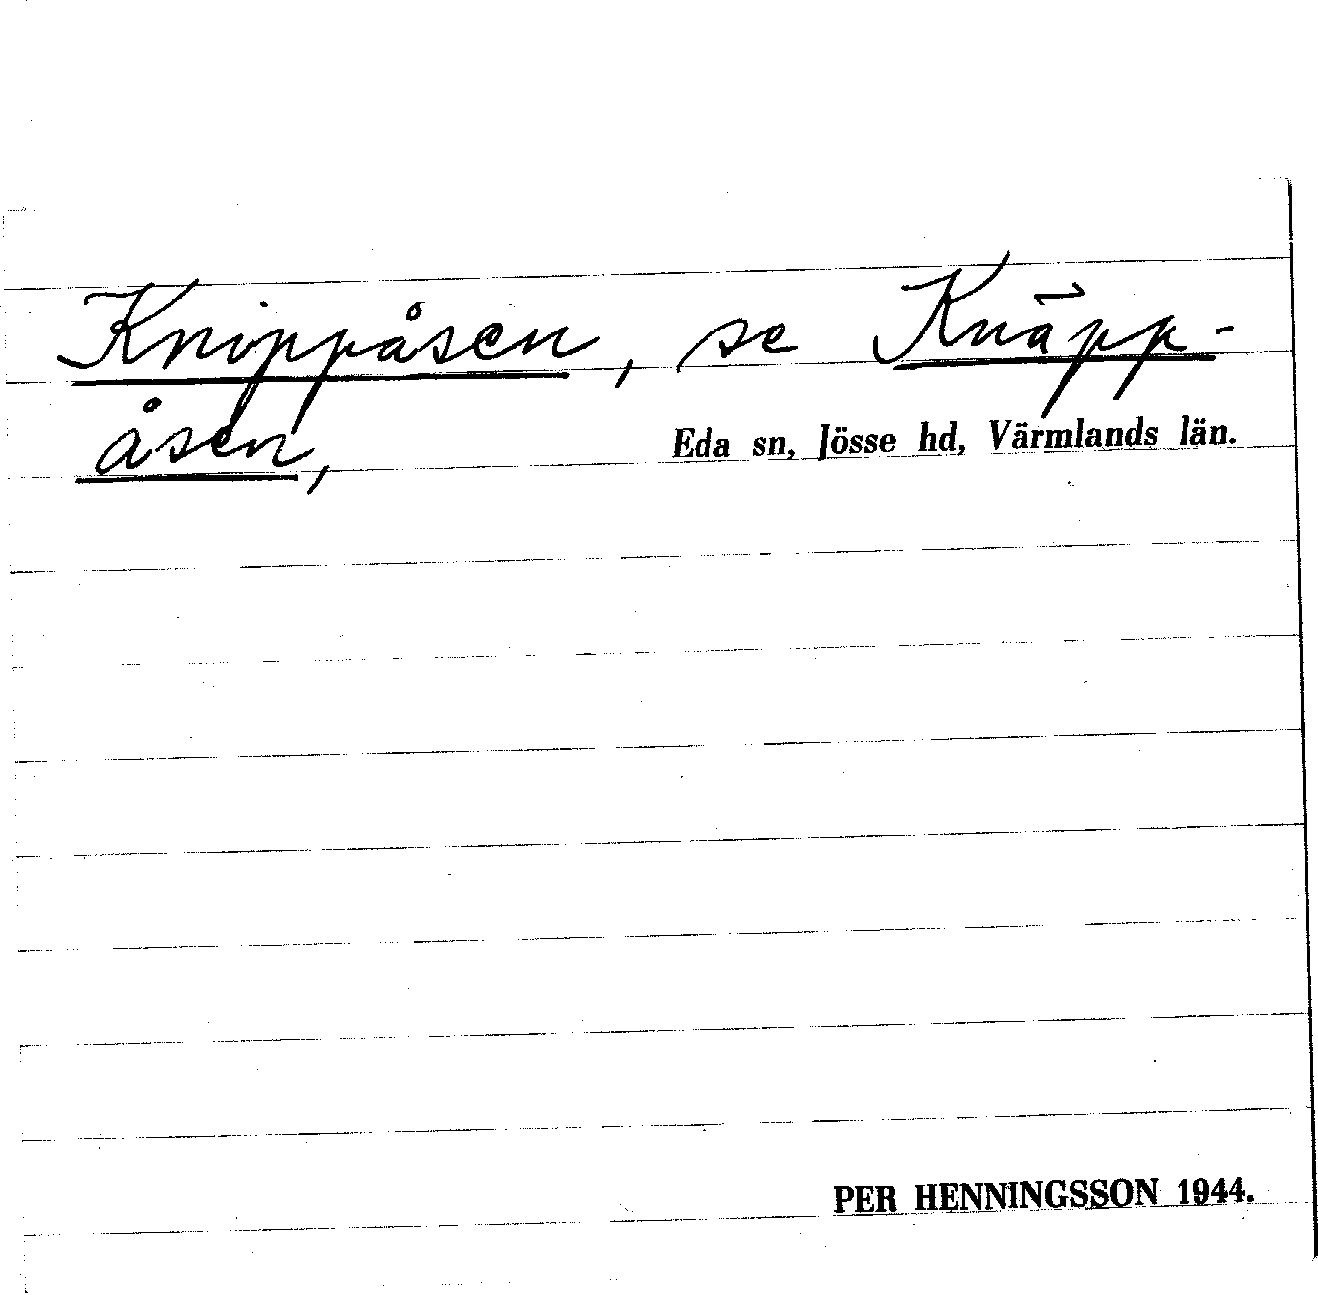 Knippåsen, se Knäpp-
åsen,
Eda sn, Jösse hd, Värmlands län.
PER HENNINGSSON 1944.